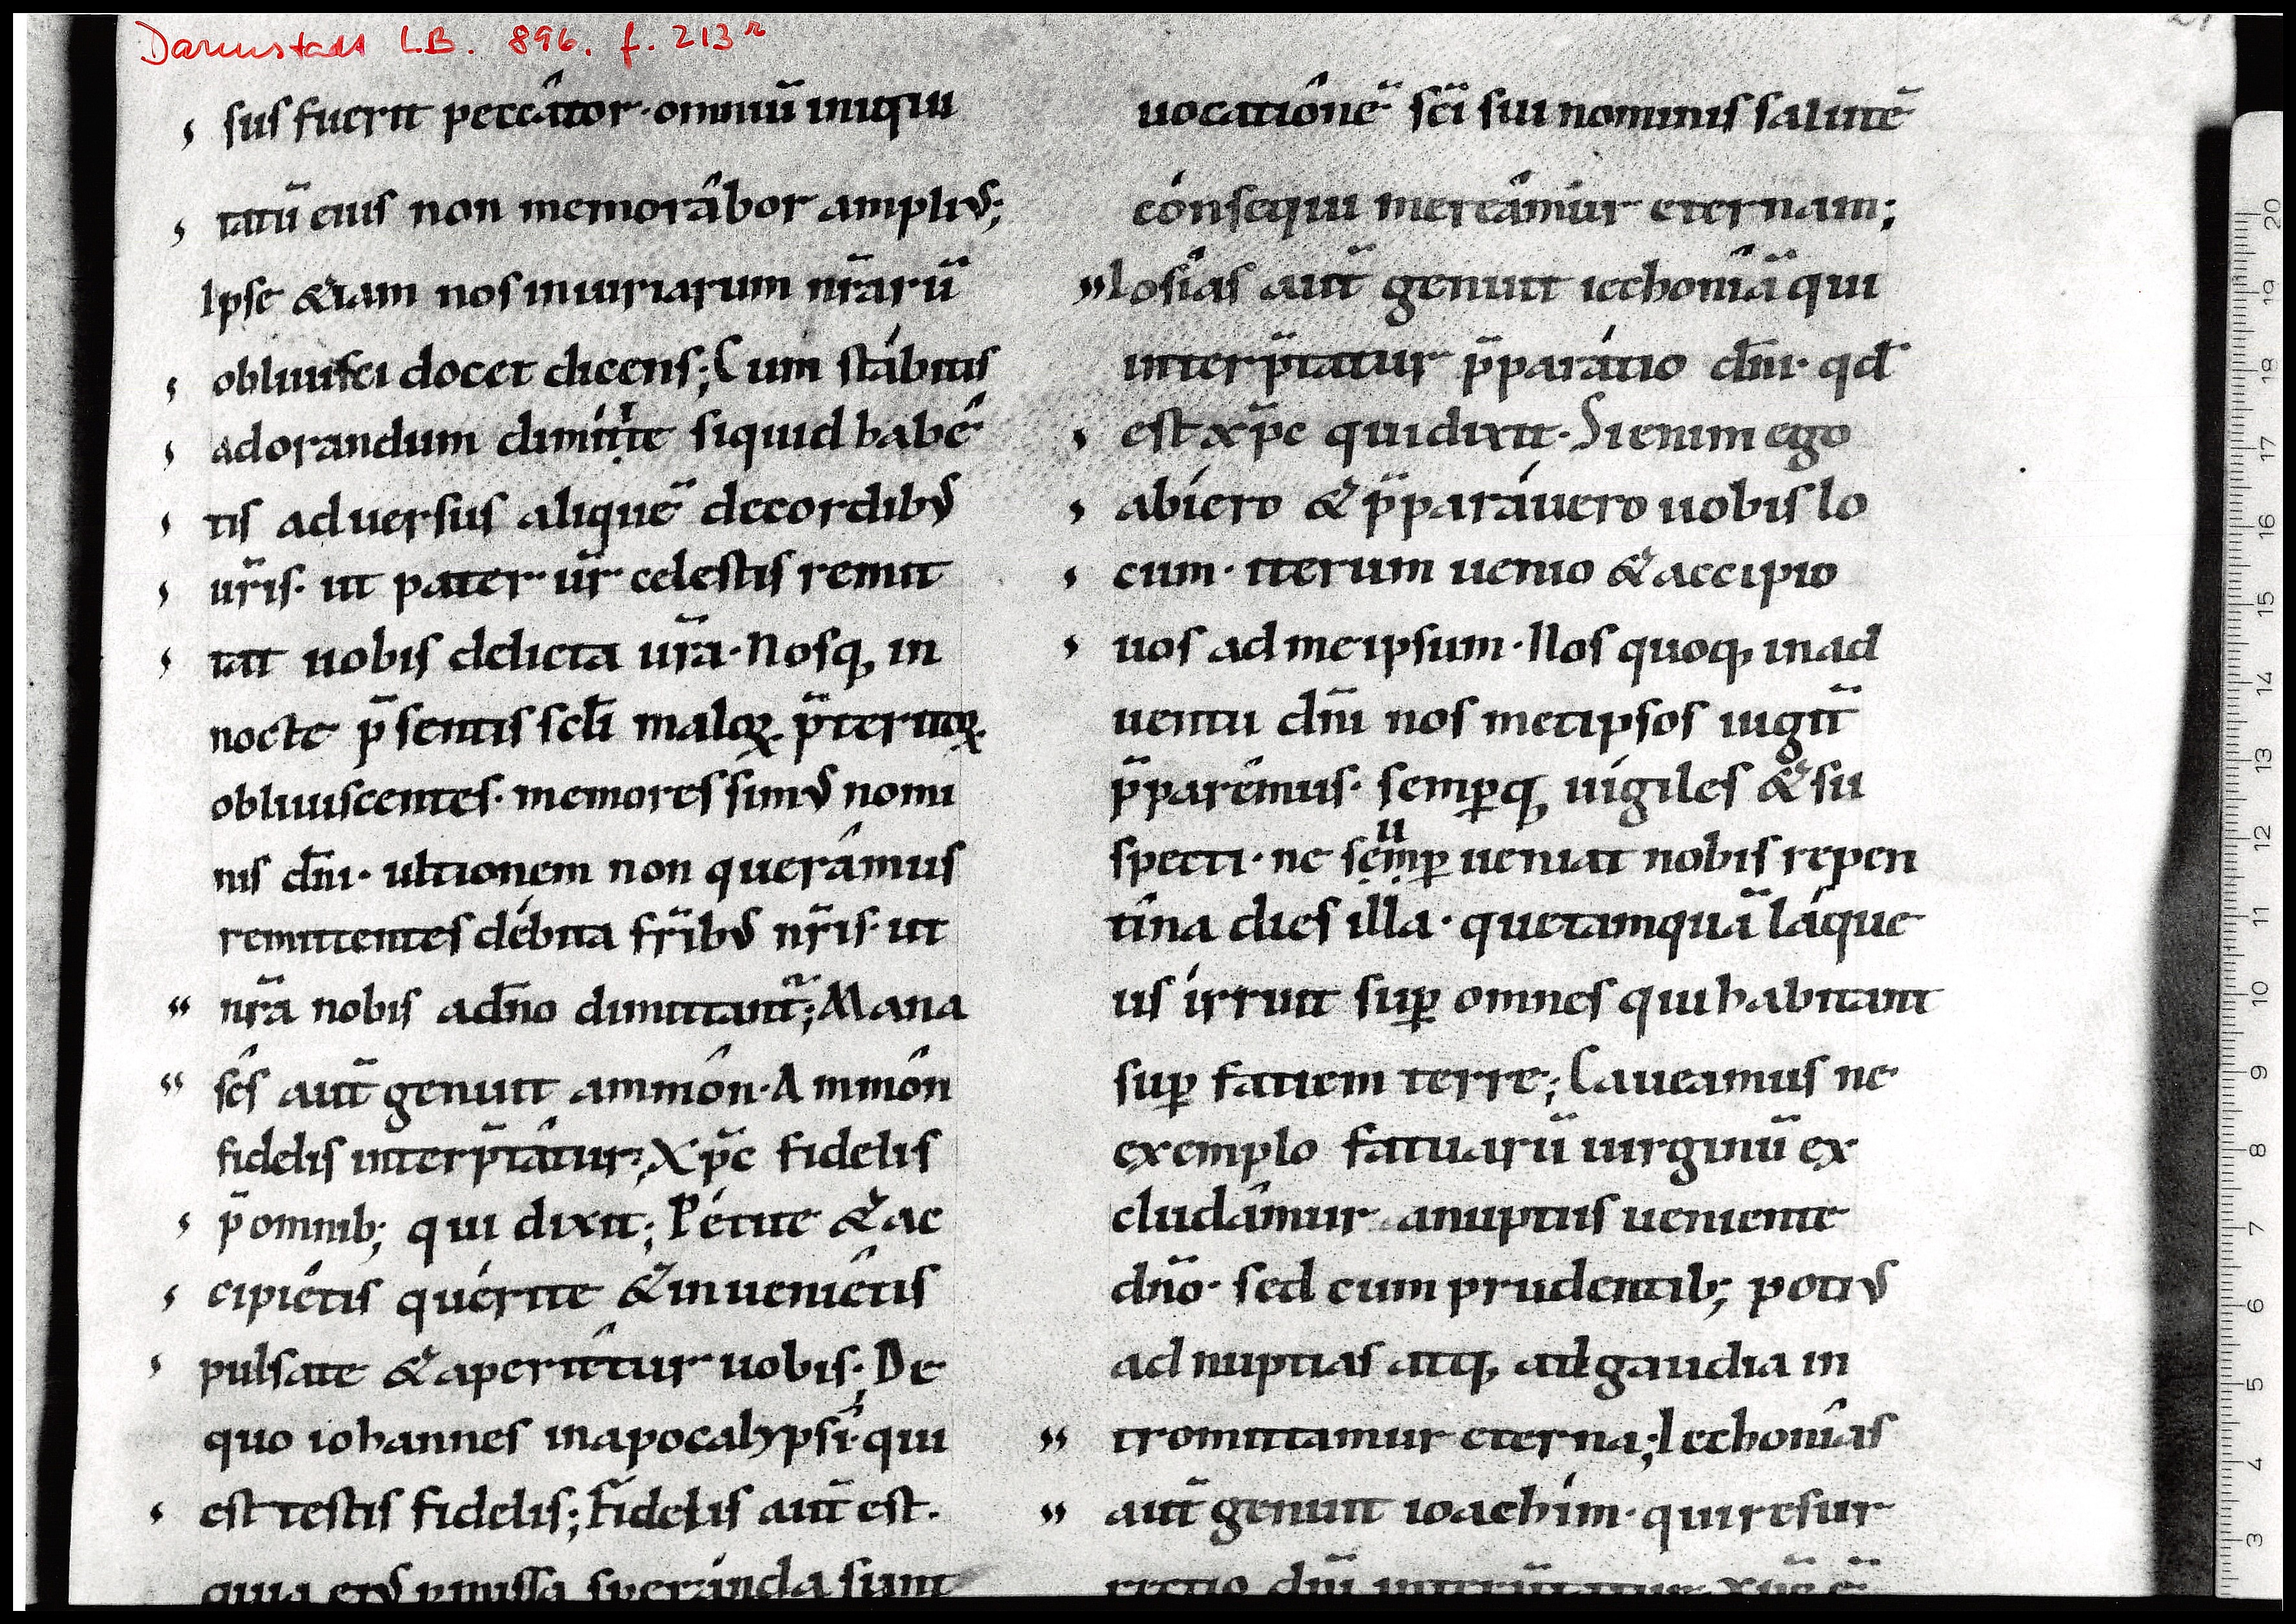 Darmstadt L.B. 896. f. 213ʳ
sus fuerit peccâtor · omniū iniqui
tatū eius non memorâbor ampliꝰ;
Ipse &iam nos iniuriarum nr̄arū
obliuisci docet dicens; Cum stábitis
ad orandum dimittite siquid habé
tis aduersus aliquē de cordibꝰ
ur̄is · ut pater ur̄ celestis remit
tat uobis delicta ur̄a · Nosq; in
nocte p̄sentis sc̄li maloꝝ p̄teritoꝝ
obliuiscentes · memores simꝰ nomi
nis dn̄i · ultionem non querámus
remittentes débita fr̄ibꝰ nr̄is · ut
nr̄a nobis a dn̄o dimittant᷑; Mana
sês aut̄ genuit ammôn · Ammôn
fidelis interp̄tâtur; Xp̄c fidelis
p̄ omnib; qui dixit; Pétite & ac
cipiétis quérite & inueniêtis
pulsate & aperiêtur uobis; De
quo iohannes in apocalypsi · qui
est testis fidelis; Fidelis aut̄ est ·
quia eiꝰ p̄missa speránda sunt
uocatiônē sc̄i sui nominis salutē
cónsequi mereâmur eternam;
Iosîas aut̄ genuit iechonîā qui
interp̄tatur p̄parátio dn̄i · qd̄
est xp̄c qui dixit · Si enim ego
abíero & p̄paráuero uobis lo
cum · iterum uenio & accipio
uos ad me ipsum · Nos quoq; in ad
uentu dn̄i nos metipsos iugit̄
p̄parêmus · semꝑq; uigiles & su
specti · ne semꝑ ueniat nobis repen
tína dies illa · que tamquā láque
us írruit suꝑ omnes qui habitant
suꝑ fatiem terre; Caueamus ne
exemplo fatuarū uirginū ex
cludâmur a nuptiis ueniente
dn̄o · sed cum prudentib; potiꝰ
ad nuptias atq; ad gaudia in
tromittamur eterna; Iechonîas
aut̄ genuit ioachím · qui resur
rectio dn̄i interp̄tatur xp̄c ē